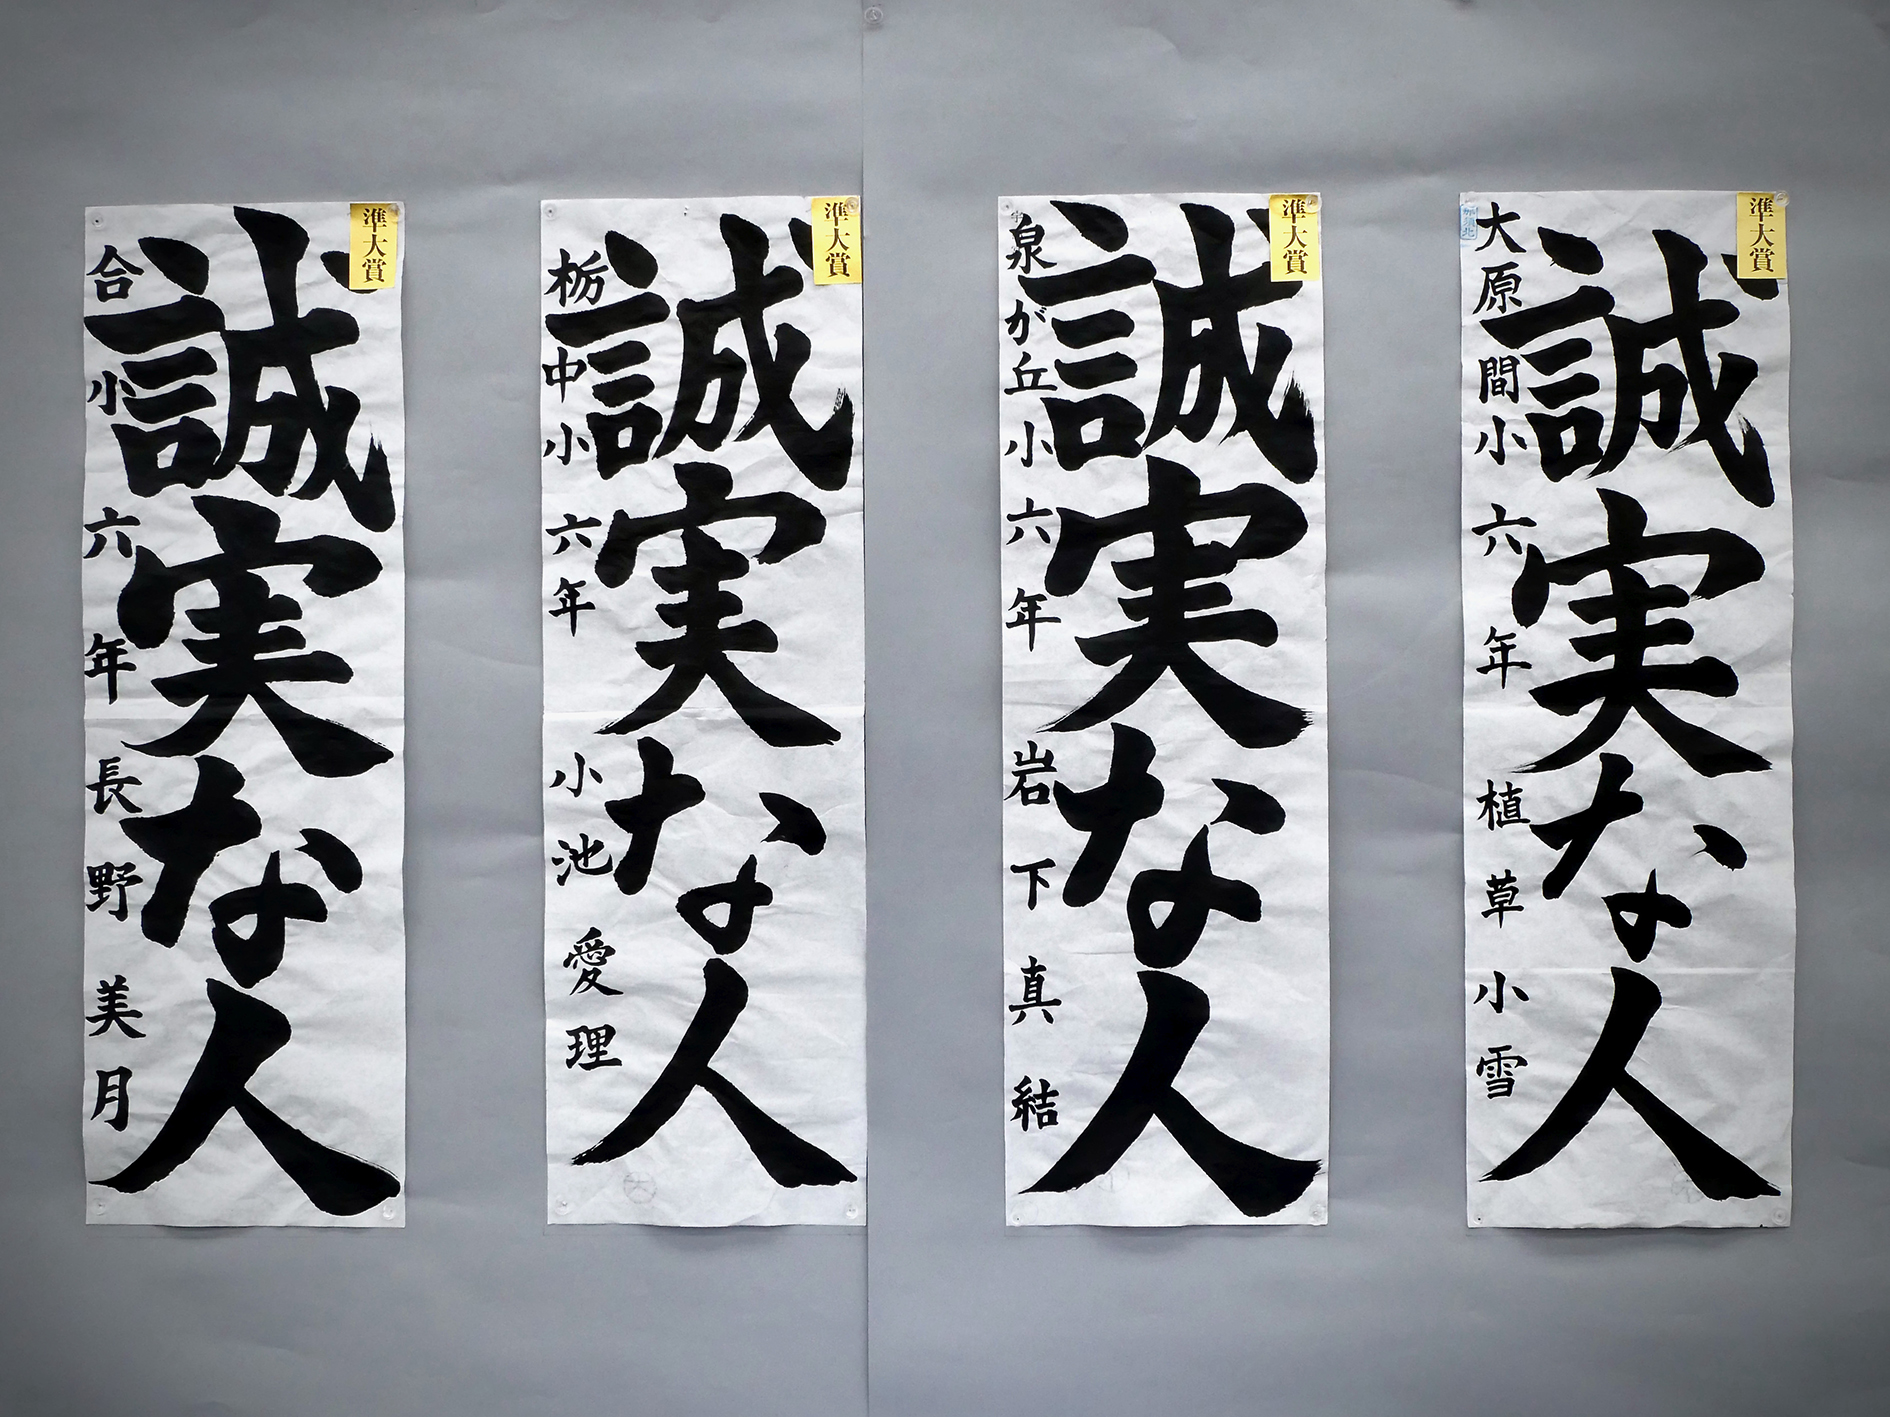 準大賞
誠実な人
大原間小 六年 植草小雪
準大賞
誠実な人
泉が丘小 六年 岩下真結
準大賞
誠実な人
栃中小 六年 小池愛理
準大賞
誠実な人
合小 六年 長野美月